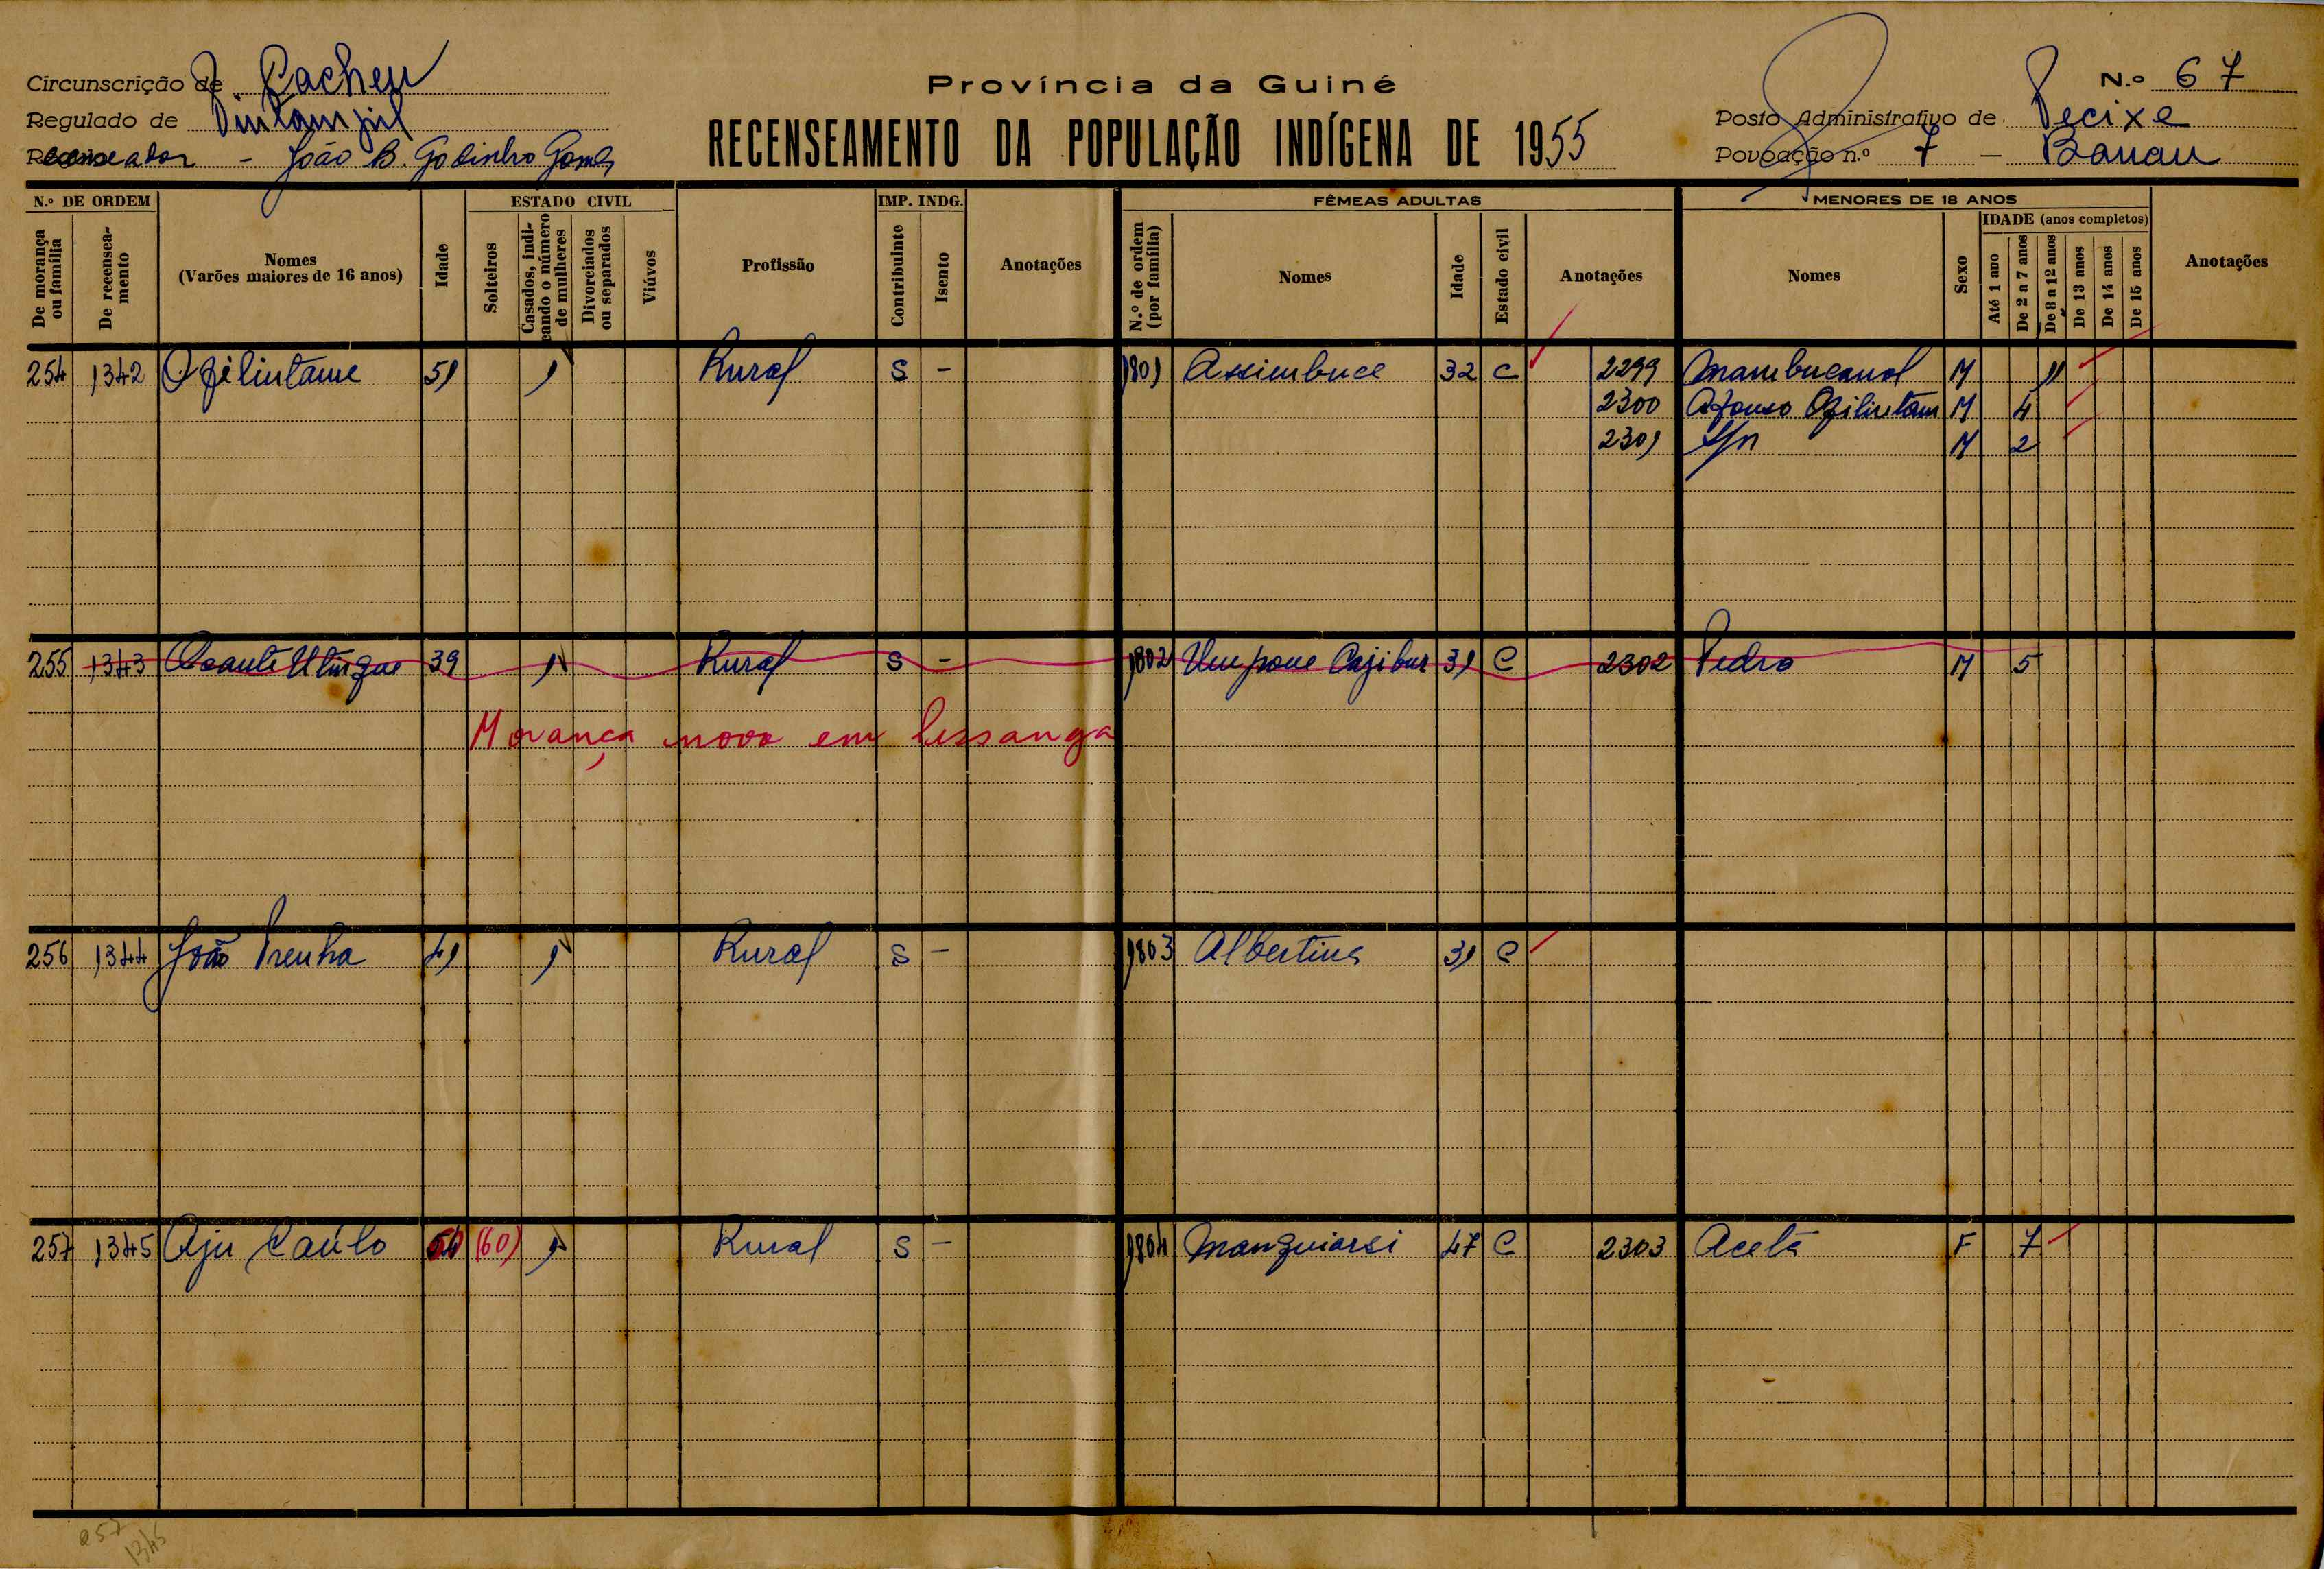 Circunscrição de Cacheu
Província da Guiné
N.º 67
Regulado de
Posto Administrativo de Pecixe
Recenseador - João B. Godinho Gomes
RECENSEAMENTO DA POPULAÇÃO INDÍGENA DE 1955
Povoação n.º 7 — Banau
N.º DE ORDEM
De morança ou família
De recenseamento
Nomes
(Varões maiores de 16 anos)
Idade
ESTADO CIVIL
Solteiros
Casados, indicando o número de mulheres
Divorciados ou separados
Viúvos
Profissão
IMP. INDG.
Contribuinte
Isento
Anotações
FÊMEAS ADULTAS
N.º de ordem (por família)
Nomes
Idade
Estado civil
Anotações
MENORES DE 18 ANOS
Nomes
Sexo
IDADE (anos completos)
Até 1 ano
De 2 a 7 anos
De 8 a 12 anos
De 13 anos
De 14 anos
De 15 anos
Anotações
254 1342 51 1 Rural S - 1801 Assimbuce 32 C 2299 Mambucanol M 11
2300 Afonso M 4
2301 S/n M 2
255 1343 39 1 Rural S - 1802 31 C 2302 Pedro M 5
Morança nova em
256 1344 João 41 1 Rural S - 1803 Albertina 31 C
257 1345 Aju (60) 1 Rural S - 1804 47 C 2303 Aceta F 7
257
1345